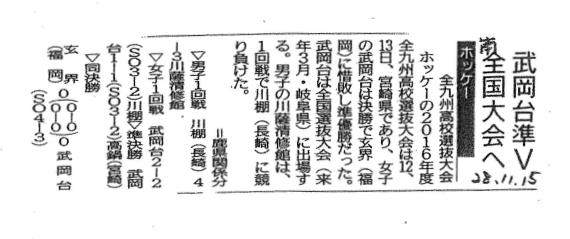 武岡台準V
全国大会へ
南
28.11.15
ホッケー
全九州高校選抜大会
ホッケーの2016年度
全九州高校選抜大会は12、
13日、宮崎県であり、女子
の武岡台は決勝で玄界(福
岡)に惜敗し準優勝だった。
武岡台は全国選抜大会(来
年3月・岐阜県)に出場す
る。男子の川薩清修館は、
1回戦で川棚(長崎)に競
り負けた。
=鹿県関係分
▽男子1回戦 川棚(長崎)4
―3川薩清修館
▽女子1回戦 武岡台2―2
(SO3―2)▽準決勝 武岡
台1―1(SO3―2)高鍋(宮崎)
▽同決勝
玄界 0(0―0 0―0)0 武岡台
(福岡)
(SO4―3)